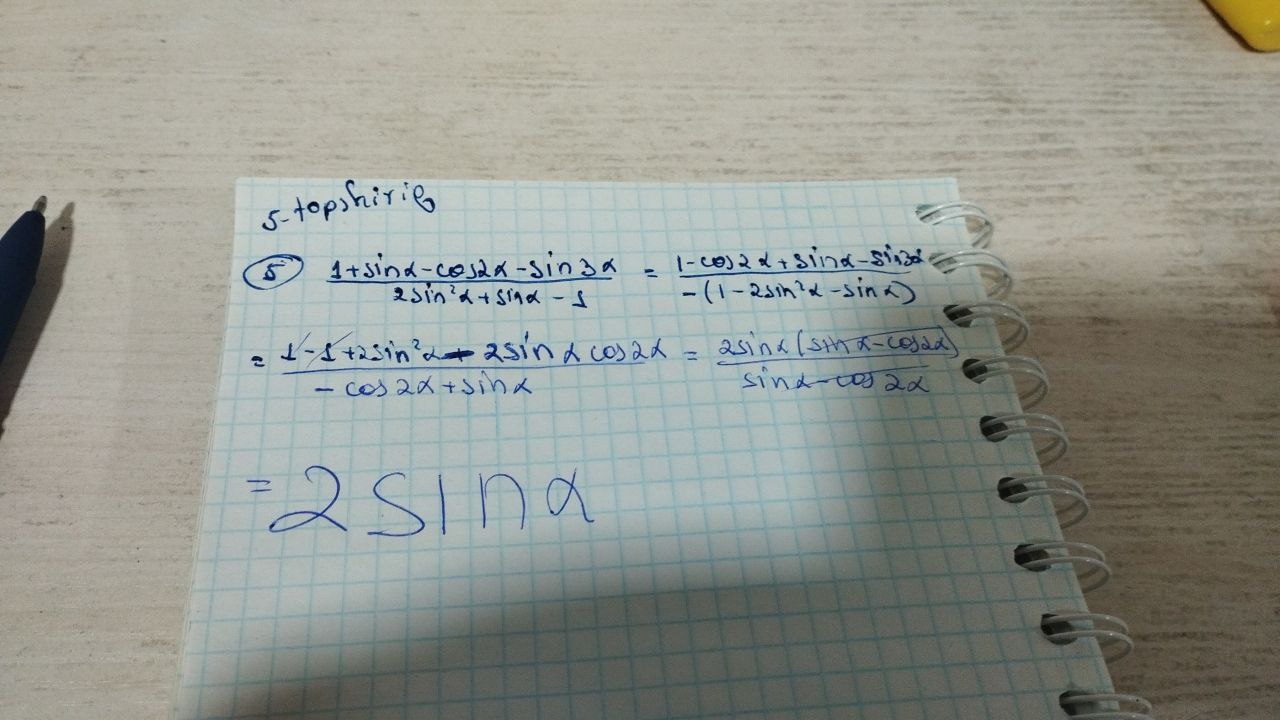 5-topshiriq
5 1+sinα-cos2α-sin3α / 2sin²α+sinα-1 = 1-cos2α+sinα-sin3α / -(1-2sin²α-sinα)
= 1-1+2sin²α-2sinαcos2α / -cos2α+sinα = 2sinα(sinα-cos2α) / sinα-cos2α
= 2sinα